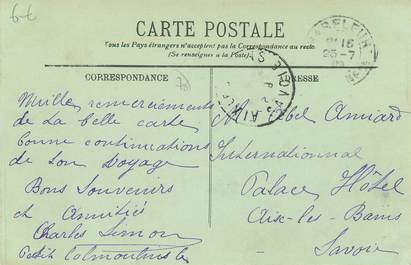 6t
CARTE POSTALE
Tous les Pays étrangers n'acceptent pas la Correspondance au recto.
(Se renseigner à la Poste)
CORRESPONDANCE
ADRESSE
HARFLEUR
16
25-7
AIX
SAVOIE
Mille remerciements
de la belle carte
bonne continuations
de son Voyage
Bons Souvenirs
et Amitiés
Charles Simon
Petit
Amiard
International
Palace Hôtel
Aix-les-Bains
Savoie